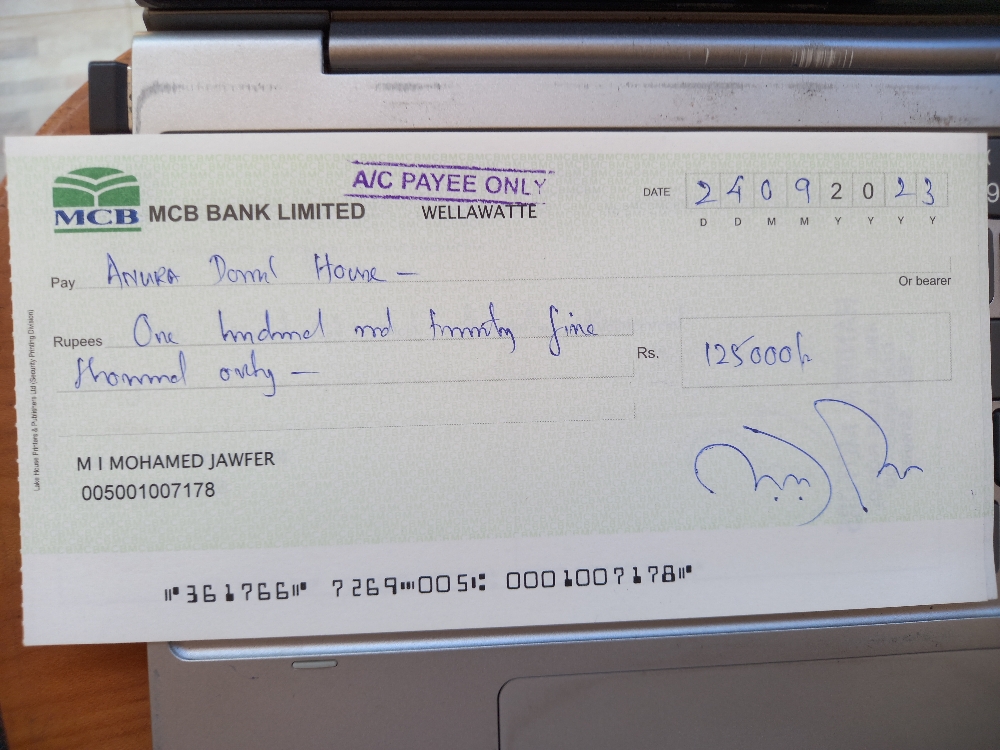 A/C PAYEE ONLY
MCB MCB BANK LIMITED WELLAWATTE
DATE 24092023
D D M M Y Y Y Y
Pay ANURA House –
Or bearer
Rupees One hundred and twenty five
thousand only –
Rs. 125000/-
M I MOHAMED JAWFER
005001007178
Lake House Printers & Publishers Ltd (Security Printing Division)
⑈361766⑈ 7269⑉005⑆ 0001007178⑈